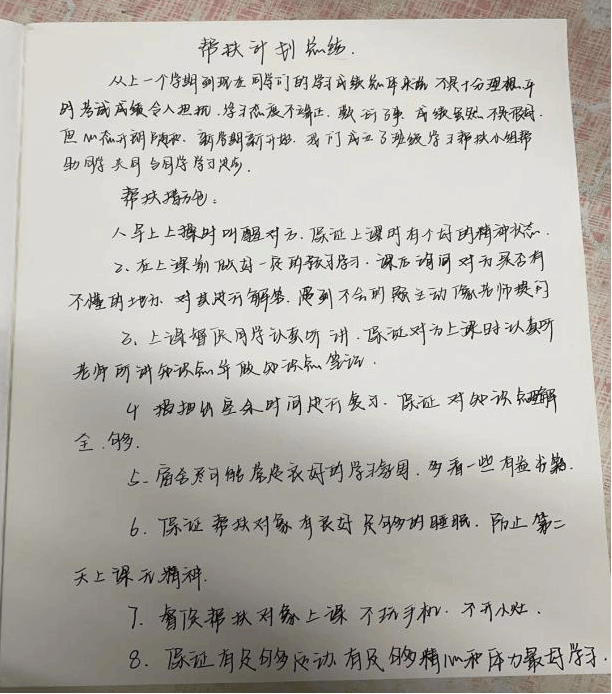 帮扶计划总结.
从上一个学期到现在同学们的学习成绩总体来说 不是十分理想 平
时考试成绩令人担忧. 学习态度不端正. 成绩虽然 不是很好.
但心态开朗 新学期新开始. 我们成立了班级学习帮扶小组帮
助同学 共同与同学学习进步.
帮扶措施:
1、早上上课时叫醒对方. 保证上课时有个好的精神状态.
2、在上课前做好一定的预习学习. 课后询问对方是否有
不懂的地方. 对其进行解答. 遇到不会的题主动像老师提问
3、上课督促同学认真听讲. 保证对方上课时认真听
老师所讲知识点并做知识点笔记.
4 指挥出空余时间进行复习. 保证对知识点理解
全.够.
5、宿舍尽可能营造良好的学习氛围. 多看一些有益书籍.
6. 保证帮扶对象有良好足够的睡眠. 防止第二
天上课无精神.
7. 督促帮扶对象上课不玩手机. 不开小灶.
8. 保证有足够运动. 有足够精心和体力最好学习.